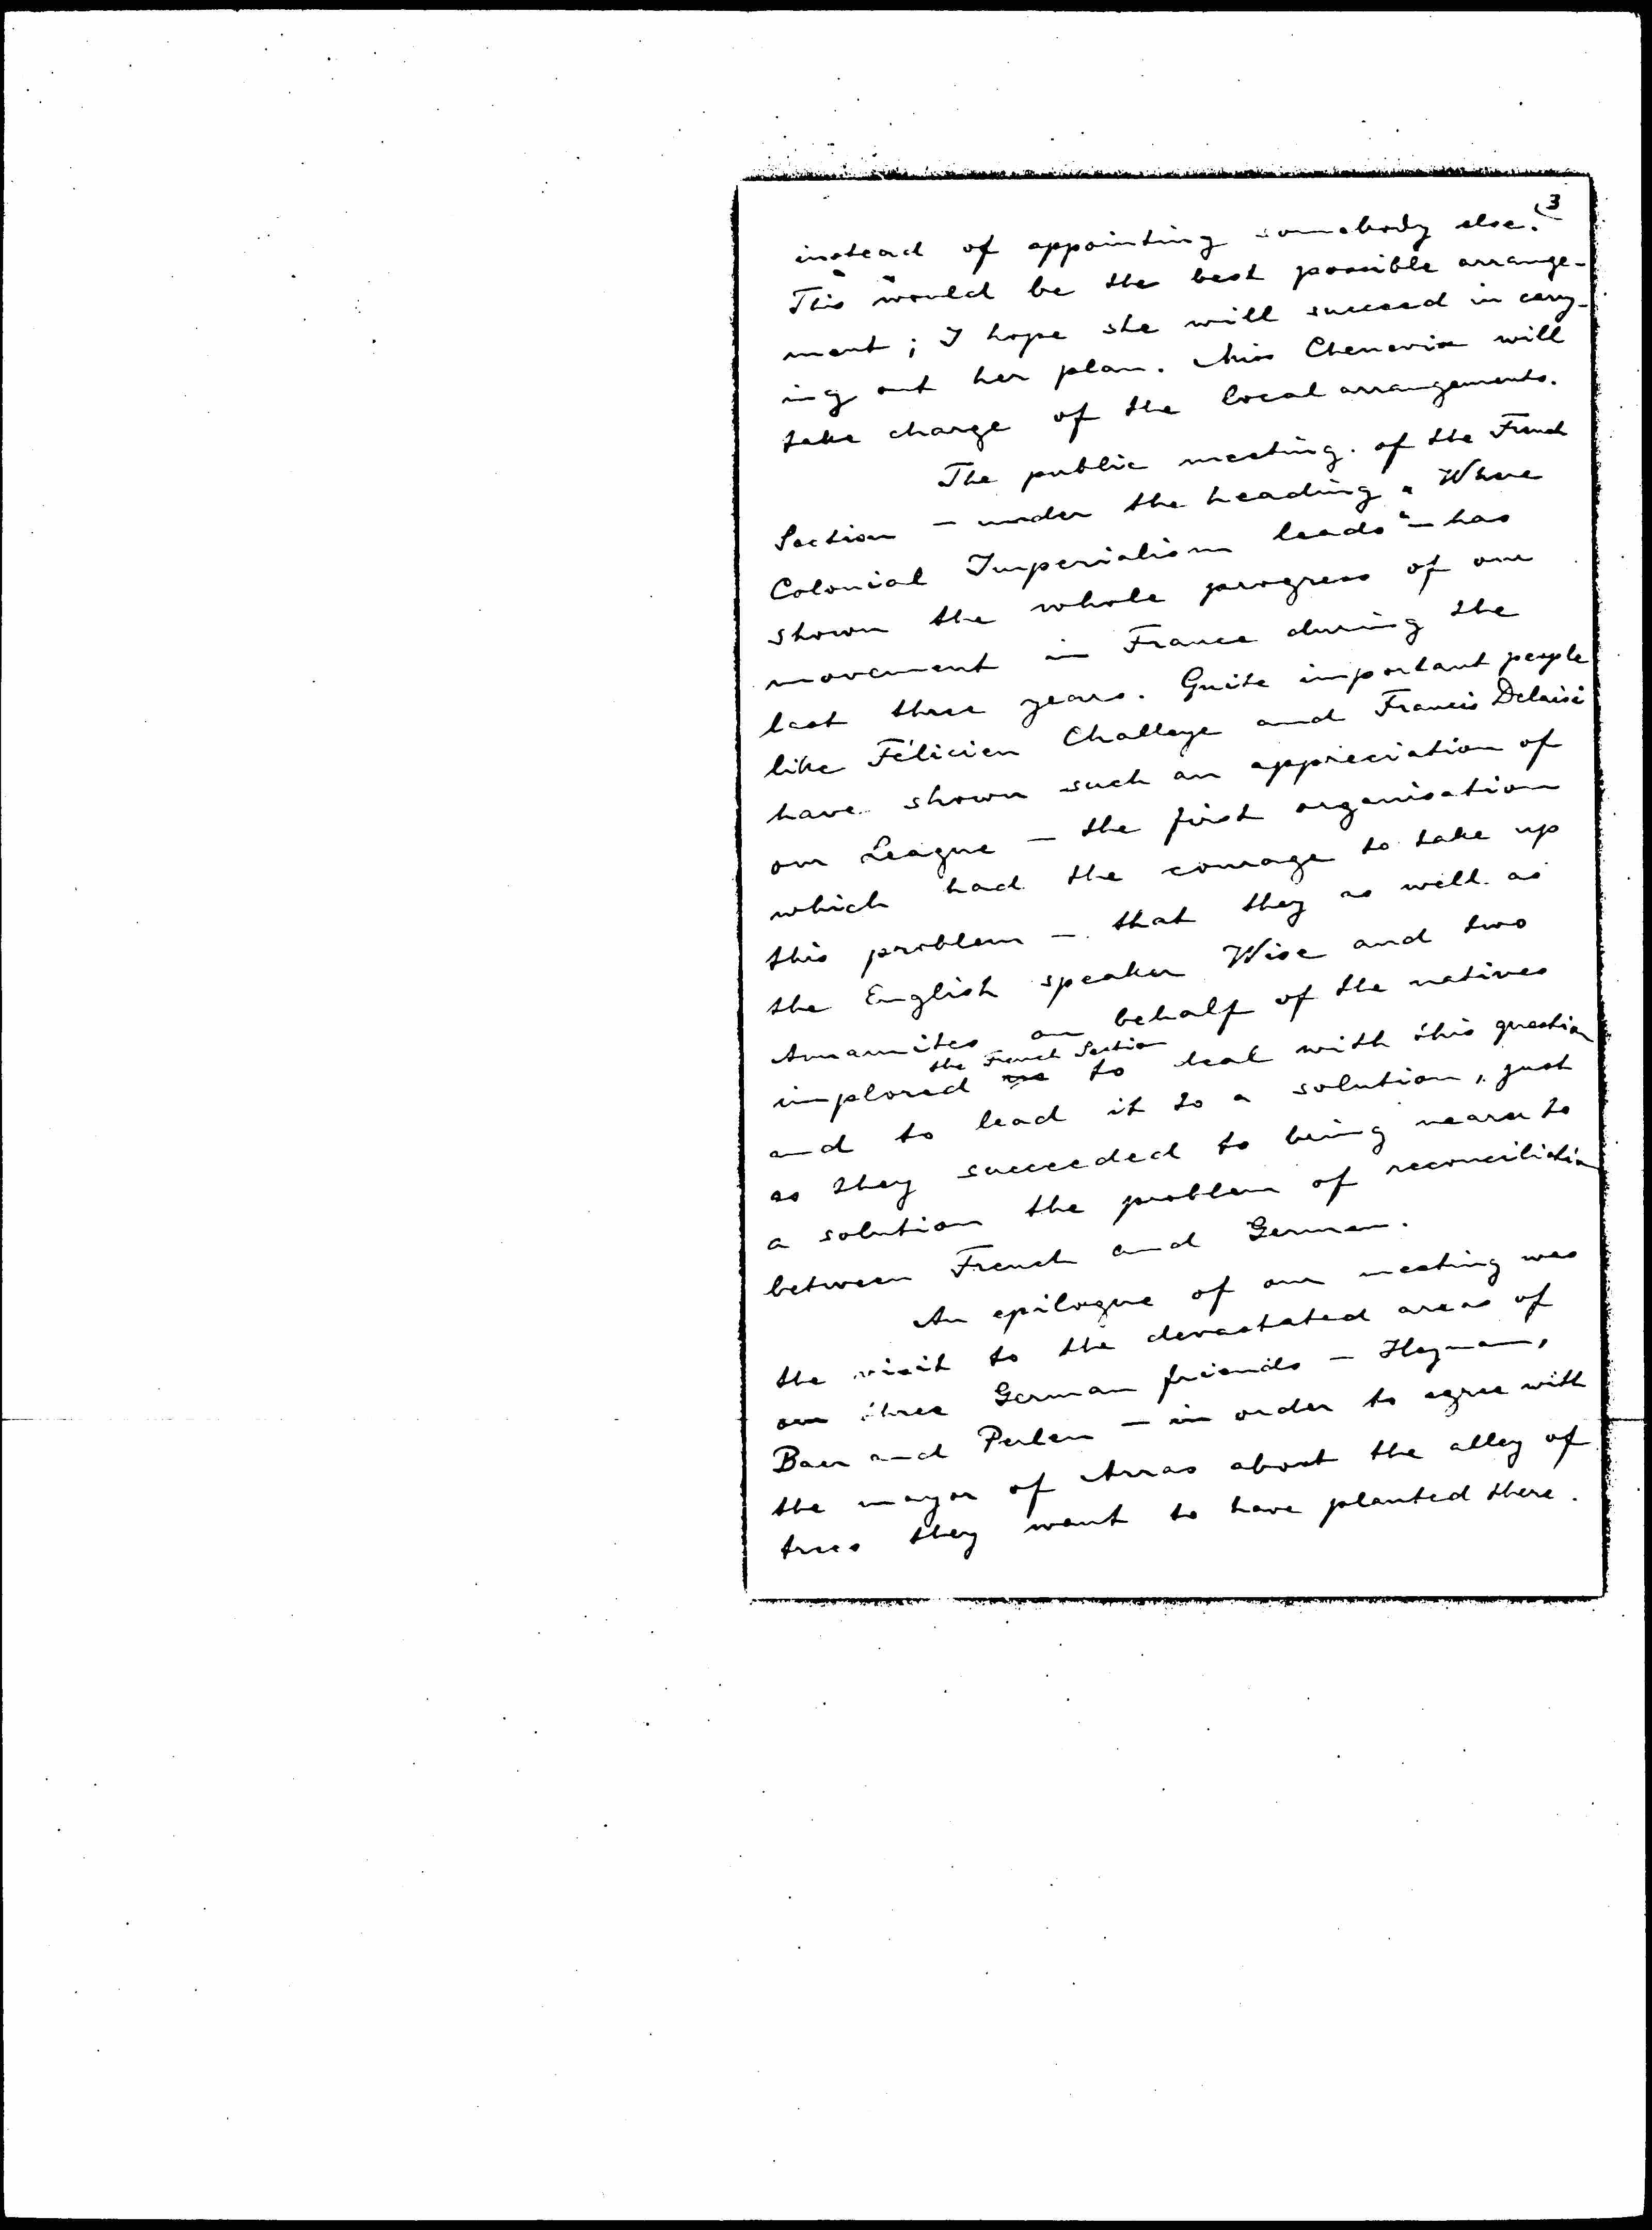 3
instead of appointing somebody else.
This would be the best possible arrange-
ment; I hope she will succeed in carry-
ing out her plan. Miss Chenevix will
take charge of the local arrangements.
The public meeting of the French
Section – under the heading „Where
Colonial Imperialism leads“ – has
shown the whole progress of our
movement in France during the
last three years. Quite important people
like Félicien Challaye and Francis Delaisi
have shown such an appreciation of
our League – the first organisation
which had the courage to take up
this problem – that they as well as
the English speaker Wise and two
Annamites on behalf of the natives
the French Section
implored to deal with this question
and to lead it to a solution, just
as they succeeded to bring nearer to
a solution the problem of reconciliation
between French and German.
An epilogue of our meeting was
the visit to the devastated areas of
our three German friends – Heymann,
Baer and Perlen – in order to agree with
the mayor of Arras about the alley of
trees they want to have planted there.